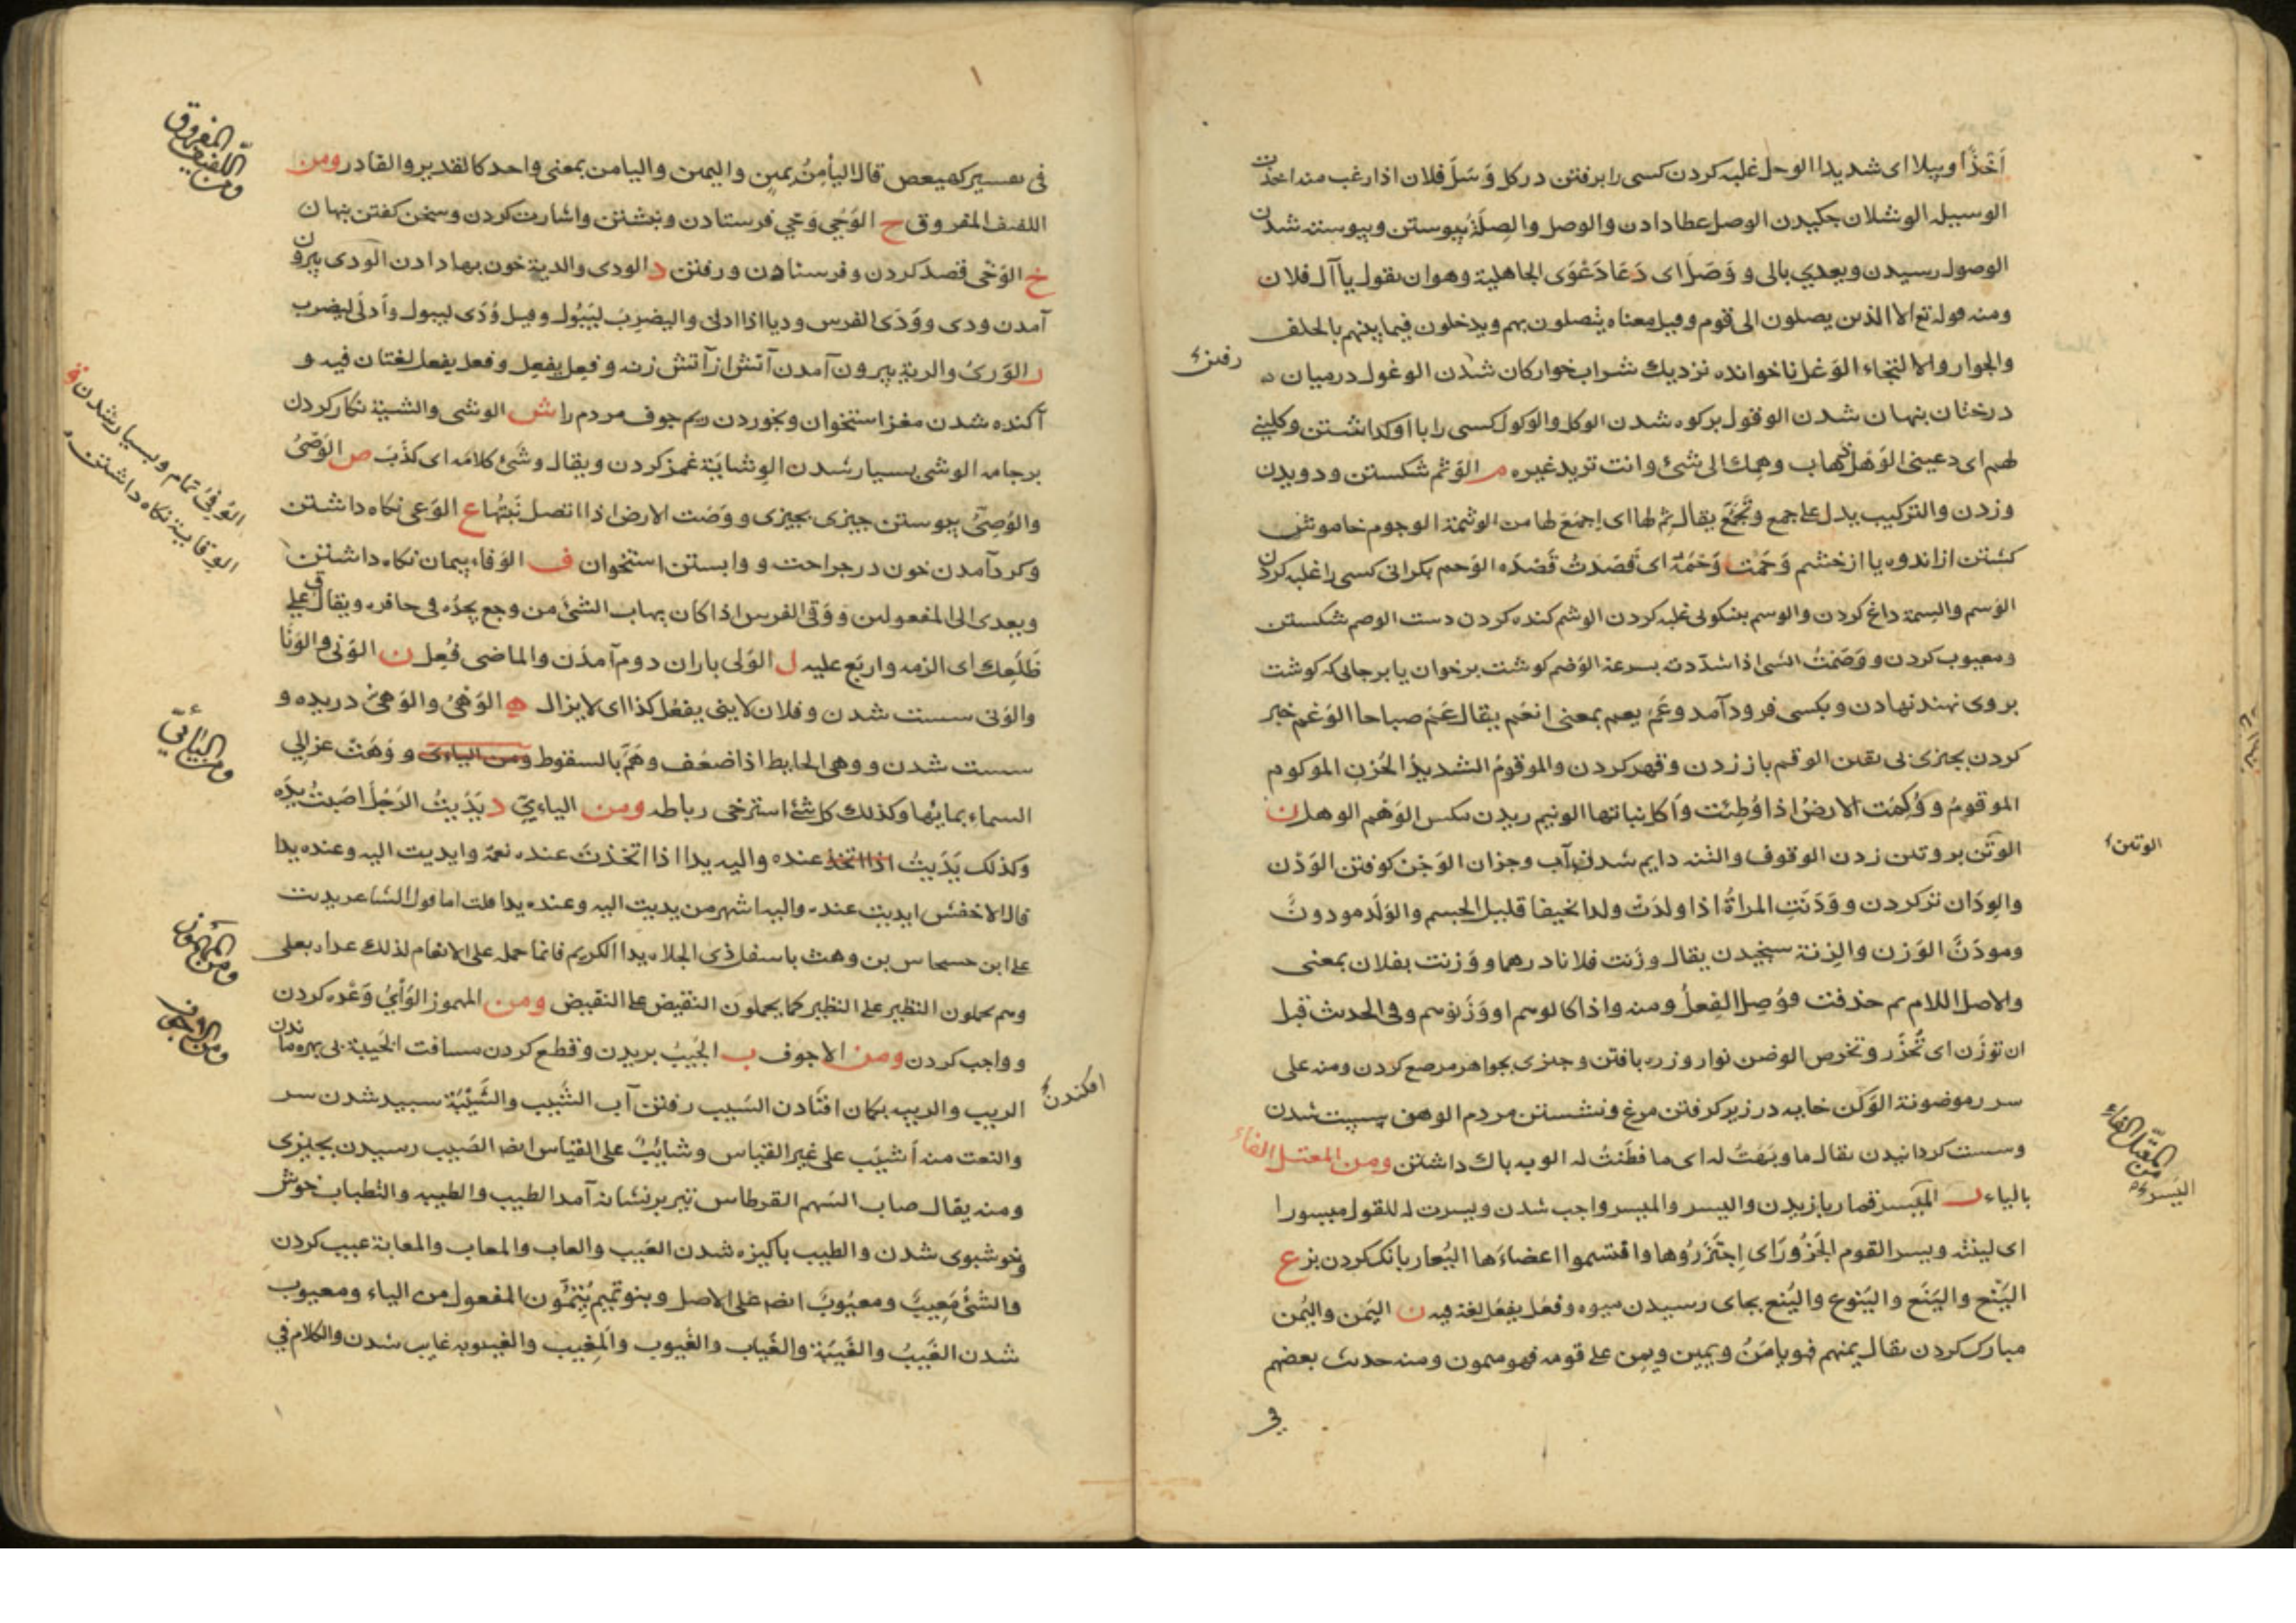 اَخْذًا وبيلا اى شديدا الوحل غلبه كردن كسى را برفتن در كل وَسَلَ فلان اذا رغب منه اخذت
الوسيله الوشلان چكيدن الوصل عطا دادن والوصل والصِلَة پيوستن وپيوسته شدن
الوصول رسيدن ويعدي بالى و وَصَلَ اى دَعَا دَعْوَى الجاهلية وهو ان يقول يا آل فلان
ومنه قوله تع الا الذين يصلون الى قوم وقيل معناه يتصلون بهم ويدخلون فيما بينهم بالحلف
والجوار والالتجاء الوَغل ناخوانده نزديك شراب خواركان شدن الوغول درميان
رفتن
درختان پنهان شدن الوقول بركوه شدن الوكل والوكول كسى را با او كذاشتن وكلينى
لهم اى دعينى الوَهَل ذهاب وهمك الى شئ وانت تريد غيره م الوَثم شكستن ودويدن
وزدن والتركيب يدل على جمع وتَجَمّع يقال ثم لها اى اجمع لها من الوثمة الوجوم خاموش
كشتن از اندوه يا از خشم وَحَمْت وَحْمَه اى قَصَدت قَصْدَه الوَحم بكرانى كسى را غلبه كردن
الوَسم والسِمة داغ كردن والوسم بنيكوئى غلبه كردن الوشم كنده كردن دست الوصم شكستن
ومعيوب كردن و وَضَمْتُ الشى اذا شدّدته بسرعة الوَضم كوشت برخوان يا برجائى كه كوشت
بروى نهند نهادن وبكسى فرود آمد وعَمَ يعم بمعنى انعَم يقال عَمْ صباحا الوَغم خبر
كردن بچيزى بى يقين الوقم باز زدن وقهر كردن والموقومُ الشديدُ الحُزنِ الموكوم
الموقومُ و وُكِمَت الارضُ اذا وُطِئت واُكل نباتها الونيم ريدن مكس الوَهْم الوهل ن
الوَتَن بر وتين زدن الوقوف والتنه دايم شدن آب وجزان الوَجْن كوفتن الوَدْن
الوتين
والوِدَان تر كردن و وَدَنَتِ المراةُ اذا ولدَتْ ولدا نحيفا قليل الجسم والوَلَد مودونٌ
ومودَنٌ الوَزن والزِنة سنجيدن يقال وزَنت فلانا درهما و وَزنت بفلان بمعنى
والاصل اللام ثم حذفت فوُصِل الفِعلُ ومنه واذا كالوهم او وَزَنوهم وفى الحديث قبل
ان توزَن اى تُحْزَر وتخرص الوضن نوار وزره بافتن وچيزى بجواهر مرصع كردن ومنه على
سرر موضونة الوَكن خايه در زير كرفتن مرغ ونشستن مردم الوهن سست شدن
وسست كردانيدن يقال ما وبَهْتُ له اى ما فطَنتُ له الوبه باك داشتن ومن المعتل الفاء
ومن المعتل الفاء
بالياء ر المَيْسر قمار بازيدن واليسر والميسر واجب شدن ويسرت له للقول ميسورا
اليَسر
اى لينته ويسر القوم الجَزُورَ اى اِجتَزَرُوها واقتسموا اعضاءَها اليُعار بانك كردن بز ع
اليَنْع واليَنَع واليَنوع واليُنع بجاى رسيدن ميوه وفعَل يفعَل لغة فيه ن اليَمن واليُمن
مبارك كردن يقال يمنهم فهو يامَنُ ويمين ويمن على قومه فهو ميمون ومنه حديث بعضهم
فى
فى تفسير كهيعص قال اليأمنُ يمين واليمين واليامن بمعنى واحد كالقدير والقادر ومن
ومن اللفيف المفروق
اللفيف المفروق ح الوَحْي وَحْي فرستادن ونبشتن واشارت كردن وسخن كفتن پنهان
خ الوَخْى قصد كردن وفرستادن ورفتن د الودى والدية خون بها دادن الودى بيرون
آمدن ودى و وَدَى الفرس وديا اذا ادلى واليضرِبَ ليَبُول وقيل وُدَى ليبول واَدلَى ليضرب
ر الوَرىُ والرية بيرون آمدن آتش از آتش زنه وفعِل يفعِل وفعل يفعل لغتان فيه و
آكنده شدن مغز استخوان وبخوردن ريم جوف مردم را ش الوشى والشية نكار كردن
برجامه الوشى بسيار شدن الوِشايَة غمز كردن ويقال وشَىُ كلامَه اى كذَبَ ص الوَصْىُ
والوُصِىُّ پيوستن چيزى بچيزى و وَصَت الارض اذا اتصل نَبتُها ع الوَعى نكاه داشتن
وكرد آمدن خون در جراحت و وابستن استخوان ف الوَفاء پيمان نكاه داشتن
الوُفِىُّ تمام وبسيار شدن ق
الوِقاية نكاه داشتن
ويعدى الى المفعولين و وَقى الفرس اذا كان يهاب الشئ من وجع يجدُه فى حافره ويقال ق على
ظَلَعِك اى الزمه واربَع عليه ل الوَلى باران دوم آمدَن والماضى فُعِل ن الوَنى والوَنَا
والوَنى سست شدن وفلان لاينى يفعُل كذا اى لايزال ه الوَهْىُ والوَهىُ دريده و
سست شدن و وهى الحايط اذا ضعُف وهَمَّ بالسقوط ومن اليائى و وَهَتْ عزالي
السماء بمايُها وكذلك كل شئ استرخى رباطه ومن اليائىِّ د يَدَيتُ الرَجُلَ اصَبتُ يدَه
ومن اليائىّ
وكذلك يَدَيتُ اذا اتخذ عنده واليه يدا اذا اتخذتَ عنده نعمة وايديت اليه وعنده يدا
قال الاخفش ايديت عنده واليه اشهر من يديت اليه وعنده يدا قلت اما قول الشاعر يديت
على ابن حسحاس بن وهب باسفل ذى الجلاه يدا الكريم فانما حمله على الانعام لذلك عداه بعلى
وهم يحملون النظير على النظير كما يحملون النقيض على النقيض ومن المهموز الوَأىُ وَعْده كردن
ومن المهموز
و واجب كردن ومن الاجوف ب الجَيبُ بريدن وقطع كردن مسافت الخَيبة بى بهره ماندن
ومن الاجوف
الريب والريبه بكمان افكندن السَيب رفتن آب الشَيب والشَيْبَة سپيد شدن سر
افكندن
والنعت منه اَشيَب على غير القياس وشائبٌ على القياس ايضا الصَيب رسيدن بچيزى
ومنه يقال صاب السَهم القرطاس تير بر نشانه آمد الطيب والطيبه والتطياب خوش
وخوشبوى شدن والطيب پاكيزه شدن العَيب والعاب والمعاب والمعابة عيب كردن
فالشئُ مَعِيبٌ ومعيُوبٌ ايضا على الاصل وبنو تميم يُتَمِّمون المفعول من الياء ومعيوب
شدن الغَيبُ والغَيبَة والغَياب والغُيوب والمَغيب والغيبوبه غايب شدن والكلام فى